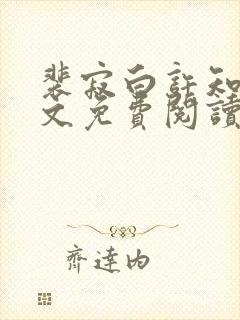 裴寂白許知
文免費閱讀
齊達內